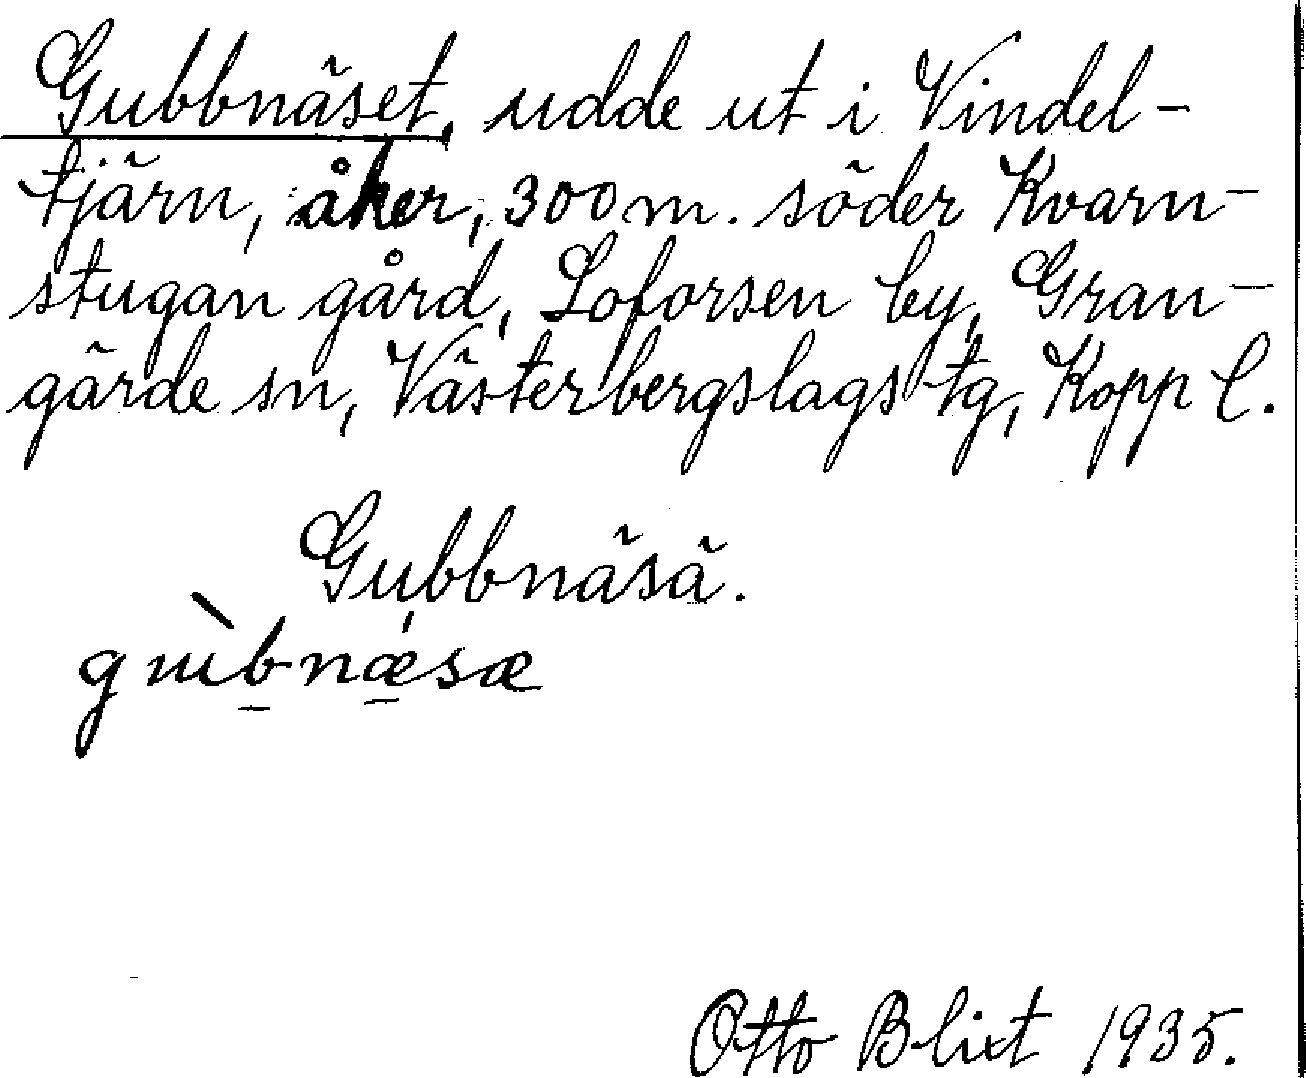 Gubbnäset, udde ut i Vindel-
tjärn, åker, 300 m. söder Kvarn-
stugan gård, Loforsen by, Gran-
gärde sn, Västerbergslags tg, Kopp l.
Gubbnäsä.
gɯ̀ḇnǽ̱sæ
Otto Blixt 1935.